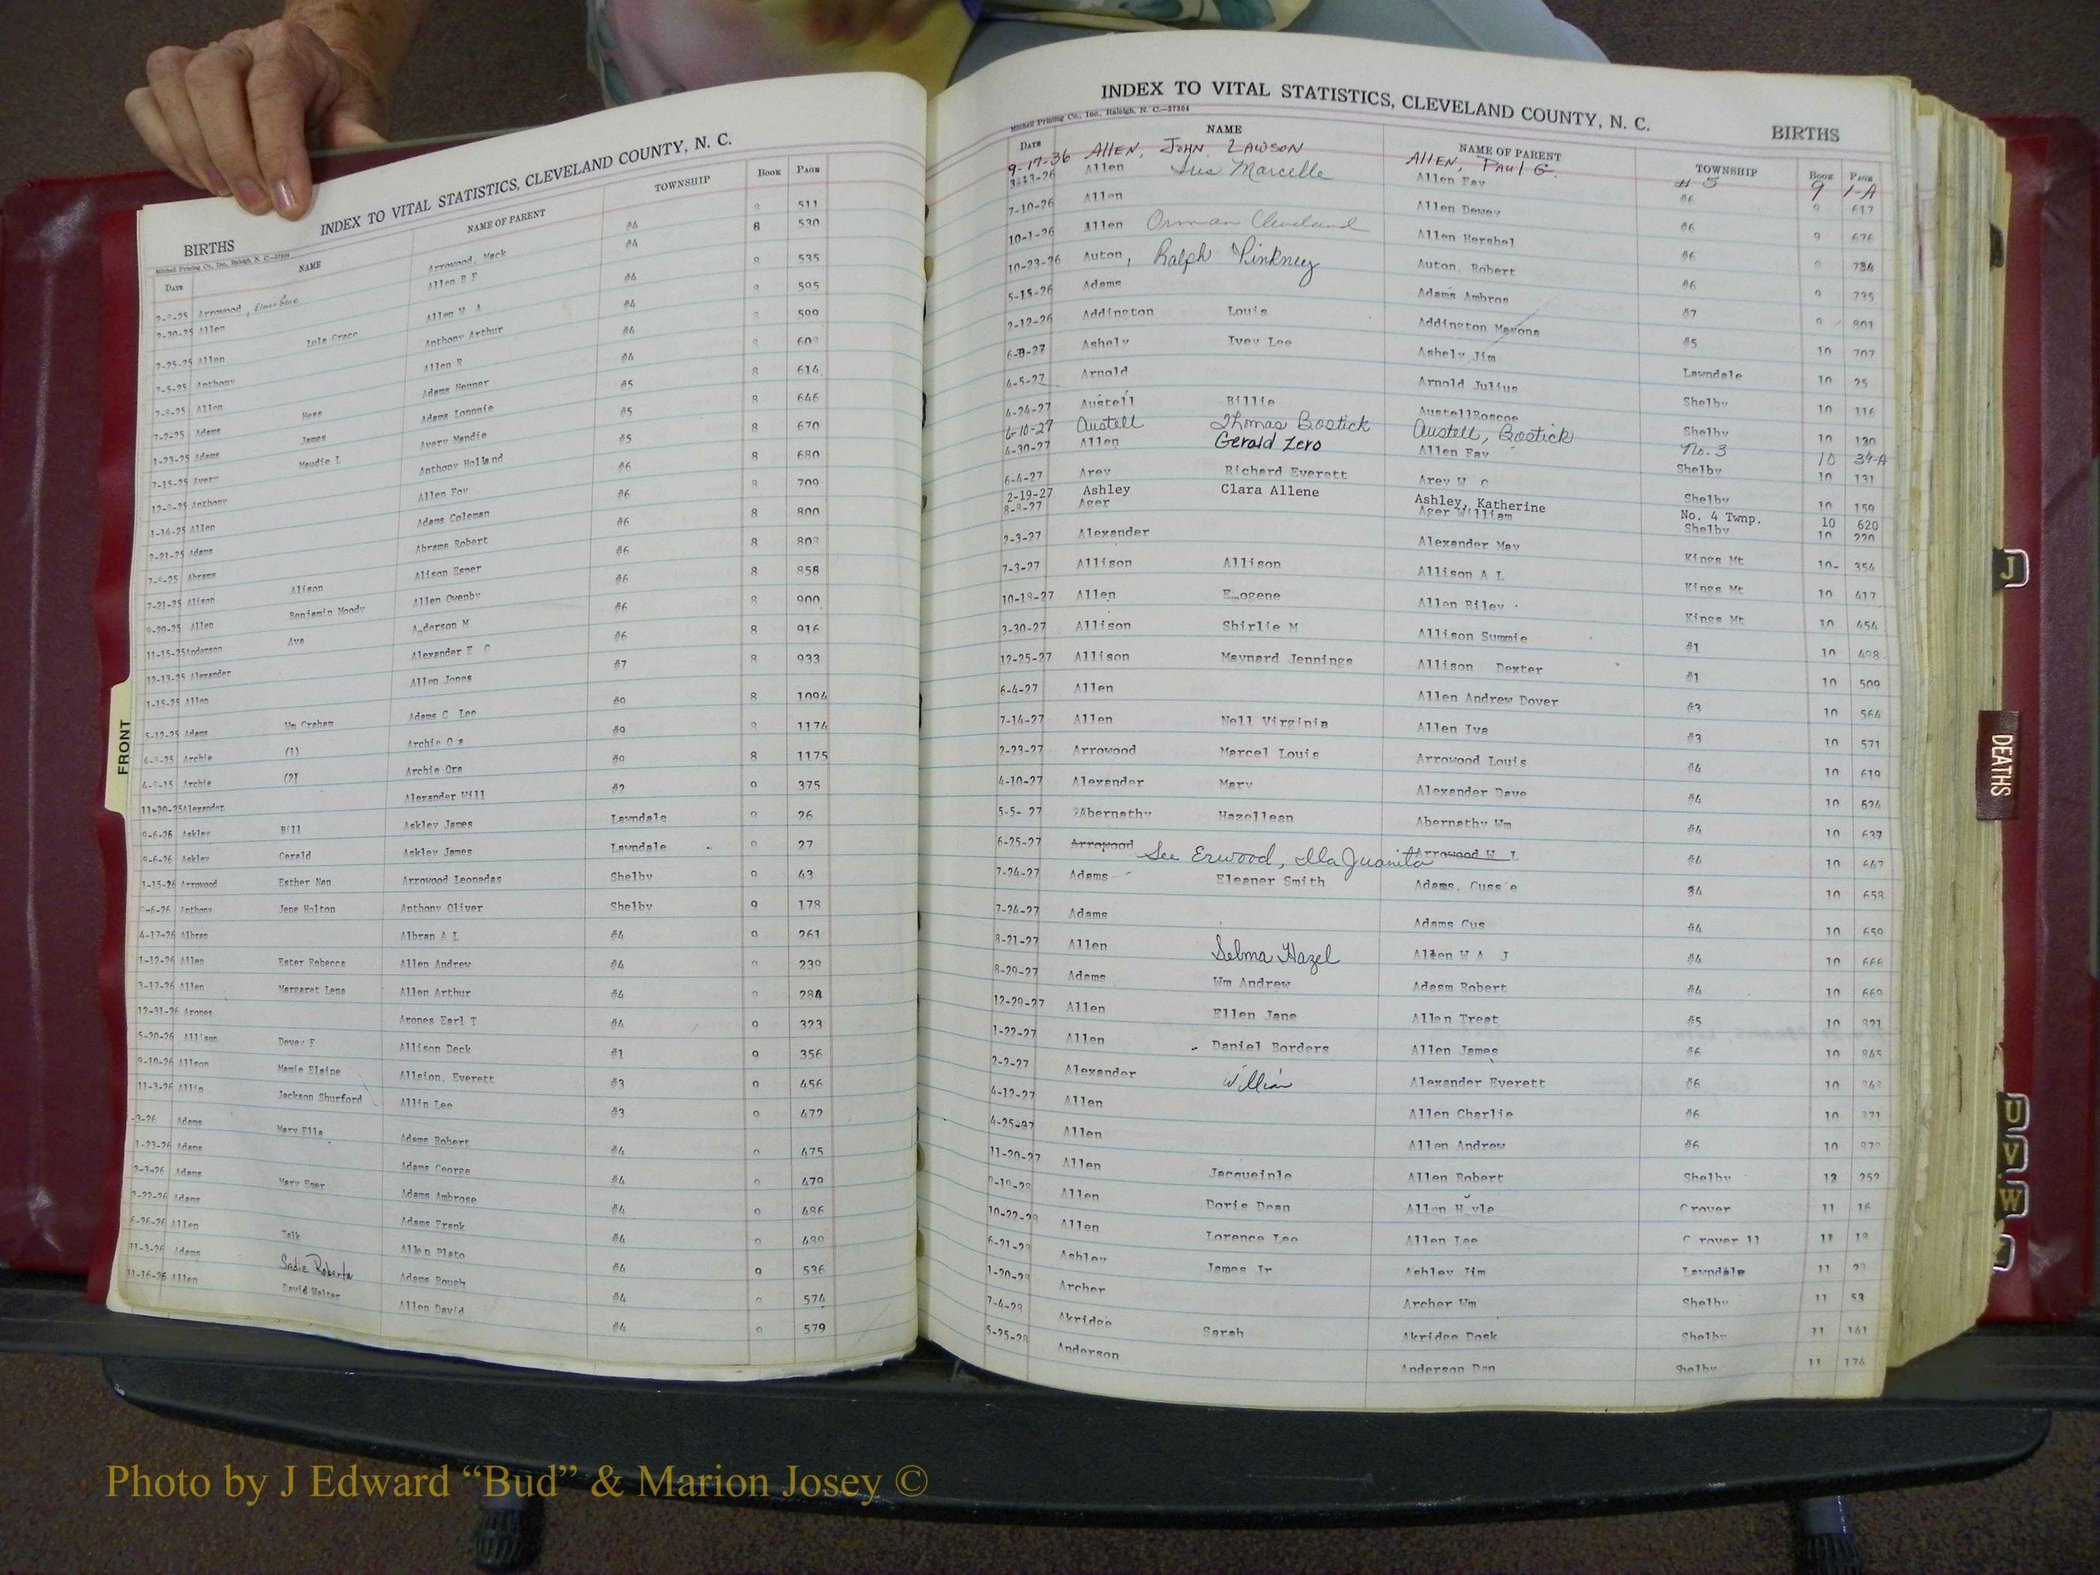 INDEX TO VITAL STATISTICS, CLEVELAND COUNTY, N. C.
BIRTHS
Mitchell Printing Co., Inc., Raleigh, N. C.—37304
DATE NAME NAME OF PARENT TOWNSHIP BOOK PAGE
2-8-25 Arrowood, Arrowood, Mack #6 8 511
2-20-25 Allen Allen B F #4 8 530
2-25-25 Allen Lula Grace Allen W A #4 8 535
Anthony Anthony Arthur #4 8 595
Allen Allen R #4 8 599
Adams Hess Adams Henner #4 8
1-23-25 Adams James Adams Lonnnie #5 8 614
7-15-25 Avery Maudie L Avery Mendie #5 8 646
12-8-25 Anthony Anthony Holland #5 8 670
1-14-25 Allen Allen Foy #6 8 680
2-21-25 Adams Adams Coleman #6 8 709
7-8-25 Abrams Abrams Robert #6 8 800
7-21-25 Alison Alison Alison Esper #6 8 808
9-20-25 Allen Benjamin Moody Allen Owenby #6 8 858
11-15-25 Anderson Ava Anderson M #6 8 900
12-13-25 Alexander Alexander E C #6 8 916
1-15-25 Allen Allen Jones #7 8 933
5-12-25 Adams Wm Graham Adams C Lee #9 8 1094
4-8-25 Archie (1) Archie O a #9 8 1174
4-8-15 Archie (2) Archie Ora #9 8 1175
11-20-25 Alexander Alexander Will #2 9 375
9-6-26 Askley Bill Askley James Lawndale 9 26
9-6-26 Askley Gerald Askley James Lawndale 9 27
1-15-26 Arrowood Esther Nan Arrowood Leonadas Shelby 9 43
Anthony Jene Holton Anthony Oliver Shelby 9 178
4-17-26 Albran Albran A L #4 9 261
1-12-26 Allen Ester Rebecca Allen Andrew #4 9 239
3-17-26 Allen Margaret Lena Allen Arthur #4 9 288
12-31-26 Arones Arones Earl T #4 9 323
5-20-26 Allison Dovey F Allison Deck #1 9 356
9-10-26 Allson Mamie Elaine Allsion, Everett #3 9 456
11-3-26 Allin Jackson Shurford Allin Lee #3 9 472
-3-26 Adams Mary Ella Adams Robert #4 9 475
1-23-26 Adams Adams George #4 9 479
2-3-26 Adams Mary Emer Adams Ambrose #4 9 486
2-22-26 Adams Adams Frank #4 9 489
6-26-26 Allen Talk Allen Plato #4 9 536
11-3-26 Adams Sadie Roberta Adams Rough #4 9 574
11-16-26 Allen David Walter Allen David #4 9 579
FRONT
INDEX TO VITAL STATISTICS, CLEVELAND COUNTY, N. C.
BIRTHS
Mitchell Printing Co., Inc., Raleigh, N. C.—37304
DATE NAME NAME OF PARENT TOWNSHIP BOOK PAGE
9-17-36 ALLEN, JOHN LAWSON ALLEN, PAUL G. #5 9 1-A
Allen Iris Marcelle Allen Fay #6 9 617
7-10-26 Allen Allen Dewey #6 9 676
10-1-26 Allen Orman Cleveland Allen Hershel #6 9
10-23-26 Auton, Ralph Pinkney Auton, Robert #6 9 735
5-15-26 Adams Adams Ambros #7 9 801
2-12-26 Addington Louis Addington Mayona #5 10 707
6-8-27 Ashely Ivey Lee Ashely Jim Lawndale 10 25
4-5-27 Arnold Arnold Julius Shelby 10 116
4-24-27 Austell Billie Austell Roscoe Shelby 10 130
6-10-27 Austell Thomas Bostick Austell, Bostick No. 3 10 39-A
4-30-27 Allen Gerald Zero Allen Fay Shelby 10 131
6-4-27 Arey Richard Everett Arey W C Shelby 10 159
2-19-27 Ashley Clara Allene Ashley, Katherine No. 4 Twnp. 10 620
8-8-27 Ager Ager William Shelby 10 220
2-3-27 Alexander Alexander May Kings Mt 10- 354
7-3-27 Allison Allison Allison A L Kings Mt 10 417
10-18-27 Allen Emogene Allen Riley Kings Mt 10 454
3-30-27 Allison Shirlie M Allison Summie #1 10 498
12-25-27 Allison Maynard Jennings Allison Dexter #1 10 509
6-4-27 Allen Allen Andrew Dover #3 10 564
7-14-27 Allen Nell Virginia Allen Iva #3 10 571
2-23-27 Arrowood Marcel Louis Arrowood Louis #4 10 619
4-10-27 Alexander Mary Alexander Dave #4 10 624
5-5-27 Abernathy Hazellean Abernathy Wm #4 10 637
6-25-27 Arrowood See Erwood, Illa Juanita Arrowood W L #4 10 647
7-24-27 Adams Eleaner Smith Adams, Cuss e #4 10 658
7-24-27 Adams Adams Gus #4 10 659
8-21-27 Allen Selma Hazel Allen W A J #4 10 666
8-29-27 Adams Wm Andrew Adasm Robert #4 10 669
12-29-27 Allen Ellen Jane Allen Treat #5 10 821
1-22-27 Allen Daniel Borders Allen James #6 10 845
2-2-27 Alexander Willian Alexander Everett #6 10
4-12-27 Allen Allen Charlie #6 10 871
4-25-27 Allen Allen Andrew #6 10
11-20-27 Allen Jacqueinle Allen Robert Shelby 12 252
9-19-28 Allen Doris Dean Allen H yle Grover 11 16
10-22-28 Allen Lorence Lee Allen Lee Grover 11 11 18
6-21-28 Ashley James Jr Ashley Jim Lawndale 11 28
1-20-28 Archer Archer Wm Shelby 11 53
7-4-28 Akridge Sarah Akridge Dosk Shelby 11 141
5-25-28 Anderson Anderson Dan Shelby 11 174
J
DEATHS
U
V
W
Photo by J Edward “Bud” & Marion Josey ©